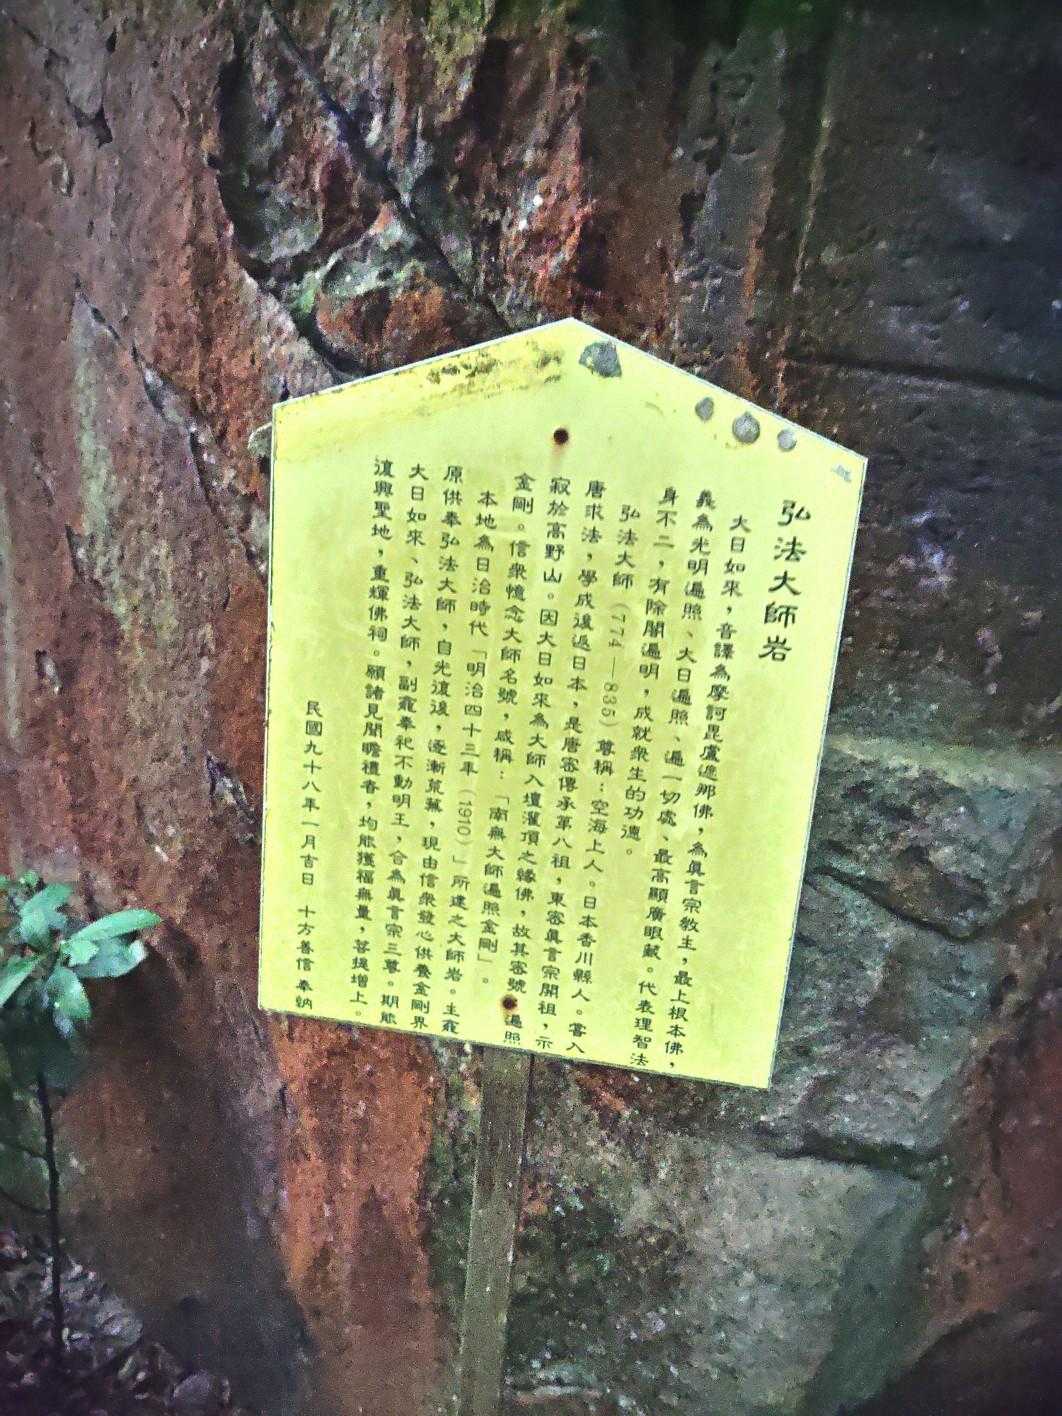 弘法大師岩
大日如來，音譯為摩訶毘盧遮那佛，為眞言宗教主，最上根本佛，
義為光明遍照、大日遍照、遍一切處、最高顯廣眼藏。代表理智法
身不二，有除闇遍明，成就衆生的功德。
弘法大師（774—835）尊稱：空海上人。日本香川縣人。嘗入
唐求法，學成復返日本，是唐密傳承第八祖，東密眞言宗開祖，示
寂於高野山。因大日如來為大師入壇灌頂之緣佛，故其密號 遍照
金剛。信衆憶念大師名號，咸稱：「南無大師遍照金剛」。
本地為日治時代「明治四十三年（1910）」所建之大師岩。主龕
原供奉弘法大師，自光復後，逐漸荒蕪，現由信衆發心供養金剛界
大日如來、弘法大師，副龕奉祀不動明王，合為眞言宗三尊。期能
復興聖地，重輝佛祠。願諸見聞瞻禮者，均能獲福無量，菩提增上。
民國九十八年一月吉日 十方善信奉納